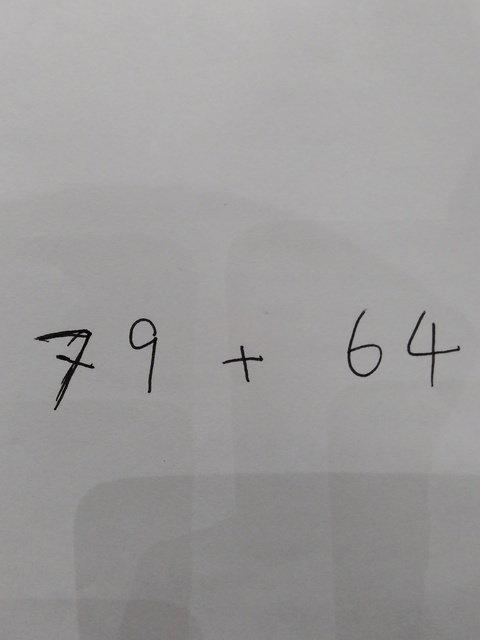 79 + 64